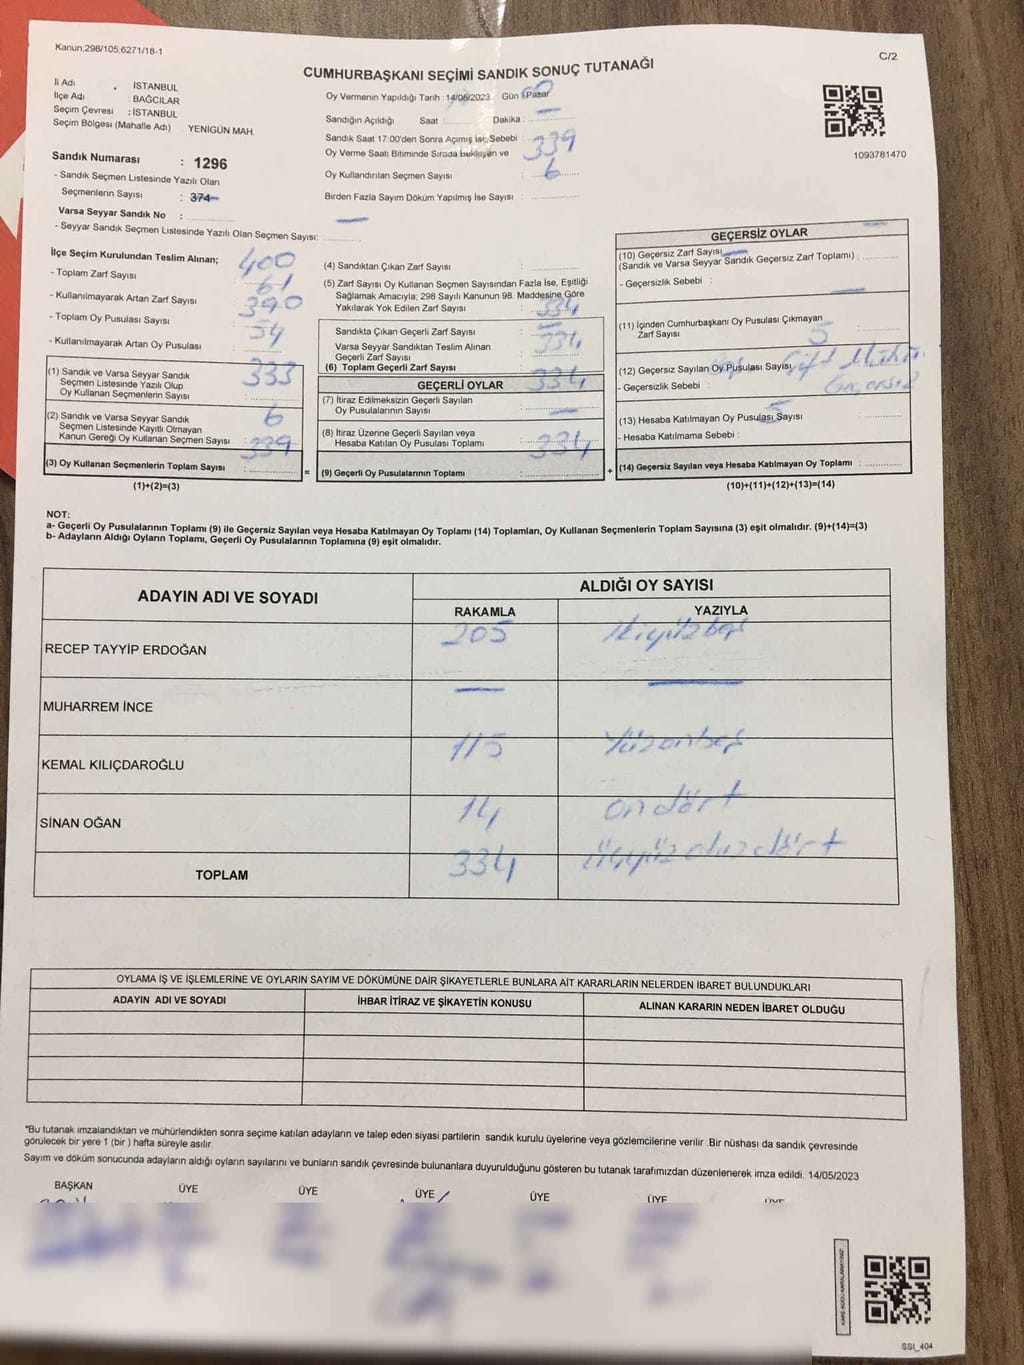 Kanun,298/105,6271/18-1
C/2
CUMHURBAŞKANI SEÇİMİ SANDIK SONUÇ TUTANAĞI
İl Adı : İSTANBUL
İlçe Adı : BAĞCILAR
Seçim Çevresi : İSTANBUL
Seçim Bölgesi (Mahalle Adı) YENİGÜN MAH.
Sandık Numarası : 1296
- Sandık Seçmen Listesinde Yazılı Olan
Seçmenlerin Sayısı : 374
Varsa Seyyar Sandık No :
- Seyyar Sandık Seçmen Listesinde Yazılı Olan Seçmen Sayısı:
Oy Vermenin Yapıldığı Tarih :14/05/2023 Gün : Pazar
Sandığın Açıldığı Saat : Dakika :
Sandık Saat 17:00'den Sonra Açılmış İse Sebebi :
Oy Verme Saati Bitiminde Sırada Bekleyen ve 339
Oy Kullandırılan Seçmen Sayısı : 6
Birden Fazla Sayım Döküm Yapılmış İse Sayısı :
1093781470
İlçe Seçim Kurulundan Teslim Alınan;
- Toplam Zarf Sayısı 400
- Kullanılmayarak Artan Zarf Sayısı 61
- Toplam Oy Pusulası Sayısı 390
- Kullanılmayarak Artan Oy Pusulası 54
(1) Sandık ve Varsa Seyyar Sandık
Seçmen Listesinde Yazılı Olup
Oy Kullanan Seçmenlerin Sayısı 333
(2) Sandık ve Varsa Seyyar Sandık
Seçmen Listesinde Kayıtlı Olmayan
Kanun Gereği Oy Kullanan Seçmen Sayısı : 6
(3) Oy Kullanan Seçmenlerin Toplam Sayısı : 339
(1)+(2)=(3)
(4) Sandıktan Çıkan Zarf Sayısı :
(5) Zarf Sayısı Oy Kullanan Seçmen Sayısından Fazla İse, Eşitliği
Sağlamak Amacıyla; 298 Sayılı Kanunun 98. Maddesine Göre
Yakılarak Yok Edilen Zarf Sayısı : 334
Sandıkta Çıkan Geçerli Zarf Sayısı :
Varsa Seyyar Sandıktan Teslim Alınan 334
Geçerli Zarf Sayısı :
(6) Toplam Geçerli Zarf Sayısı :
GEÇERLİ OYLAR 334
(7) İtiraz Edilmeksizin Geçerli Sayılan
Oy Pusulalarının Sayısı :
(8) İtiraz Üzerine Geçerli Sayılan veya
Hesaba Katılan Oy Pusulası Toplamı : 334
= (9) Geçerli Oy Pusulalarının Toplamı :
GEÇERSİZ OYLAR
(10) Geçersiz Zarf Sayısı
(Sandık ve Varsa Seyyar Sandık Geçersiz Zarf Toplamı) :
- Geçersizlik Sebebi :
(11) İçinden Cumhurbaşkanı Oy Pusulası Çıkmayan
Zarf Sayısı : 5
(12) Geçersiz Sayılan Oy Pusulası Sayısı Çift Mühür
- Geçersizlik Sebebi : Geçersiz
(13) Hesaba Katılmayan Oy Pusulası Sayısı 5
- Hesaba Katılmama Sebebi :
+ (14) Geçersiz Sayılan veya Hesaba Katılmayan Oy Toplamı :
(10)+(11)+(12)+(13)=(14)
NOT:
a- Geçerli Oy Pusulalarının Toplamı (9) ile Geçersiz Sayılan veya Hesaba Katılmayan Oy Toplamı (14) Toplamları, Oy Kullanan Seçmenlerin Toplam Sayısına (3) eşit olmalıdır. (9)+(14)=(3)
b- Adayların Aldığı Oyların Toplamı, Geçerli Oy Pusulalarının Toplamına (9) eşit olmalıdır.
ADAYIN ADI VE SOYADI ALDIĞI OY SAYISI
RAKAMLA YAZIYLA
RECEP TAYYİP ERDOĞAN 205 İkiyüzbeş
MUHARREM İNCE
KEMAL KILIÇDAROĞLU 115 Yüzonbeş
SİNAN OĞAN 14 ondört
TOPLAM 334 üçyüzotuzdört
OYLAMA İŞ VE İŞLEMLERİNE VE OYLARIN SAYIM VE DÖKÜMÜNE DAİR ŞİKAYETLERLE BUNLARA AİT KARARLARIN NELERDEN İBARET BULUNDUKLARI
ADAYIN ADI VE SOYADI İHBAR İTİRAZ VE ŞİKAYETİN KONUSU ALINAN KARARIN NEDEN İBARET OLDUĞU
*Bu tutanak imzalandıktan ve mühürlendikten sonra seçime katılan adayların ve talep eden siyasi partilerin sandık kurulu üyelerine veya gözlemcilerine verilir .Bir nüshası da sandık çevresinde
görülecek bir yere 1 (bir ) hafta süreyle asılır.
Sayım ve döküm sonucunda adayların aldığı oyların sayılarını ve bunların sandık çevresinde bulunanlara duyurulduğunu gösteren bu tutanak tarafımızdan düzenlenerek imza edildi. 14/05/2023
BAŞKAN ÜYE ÜYE ÜYE ÜYE ÜYE ÜYE
SSI_404